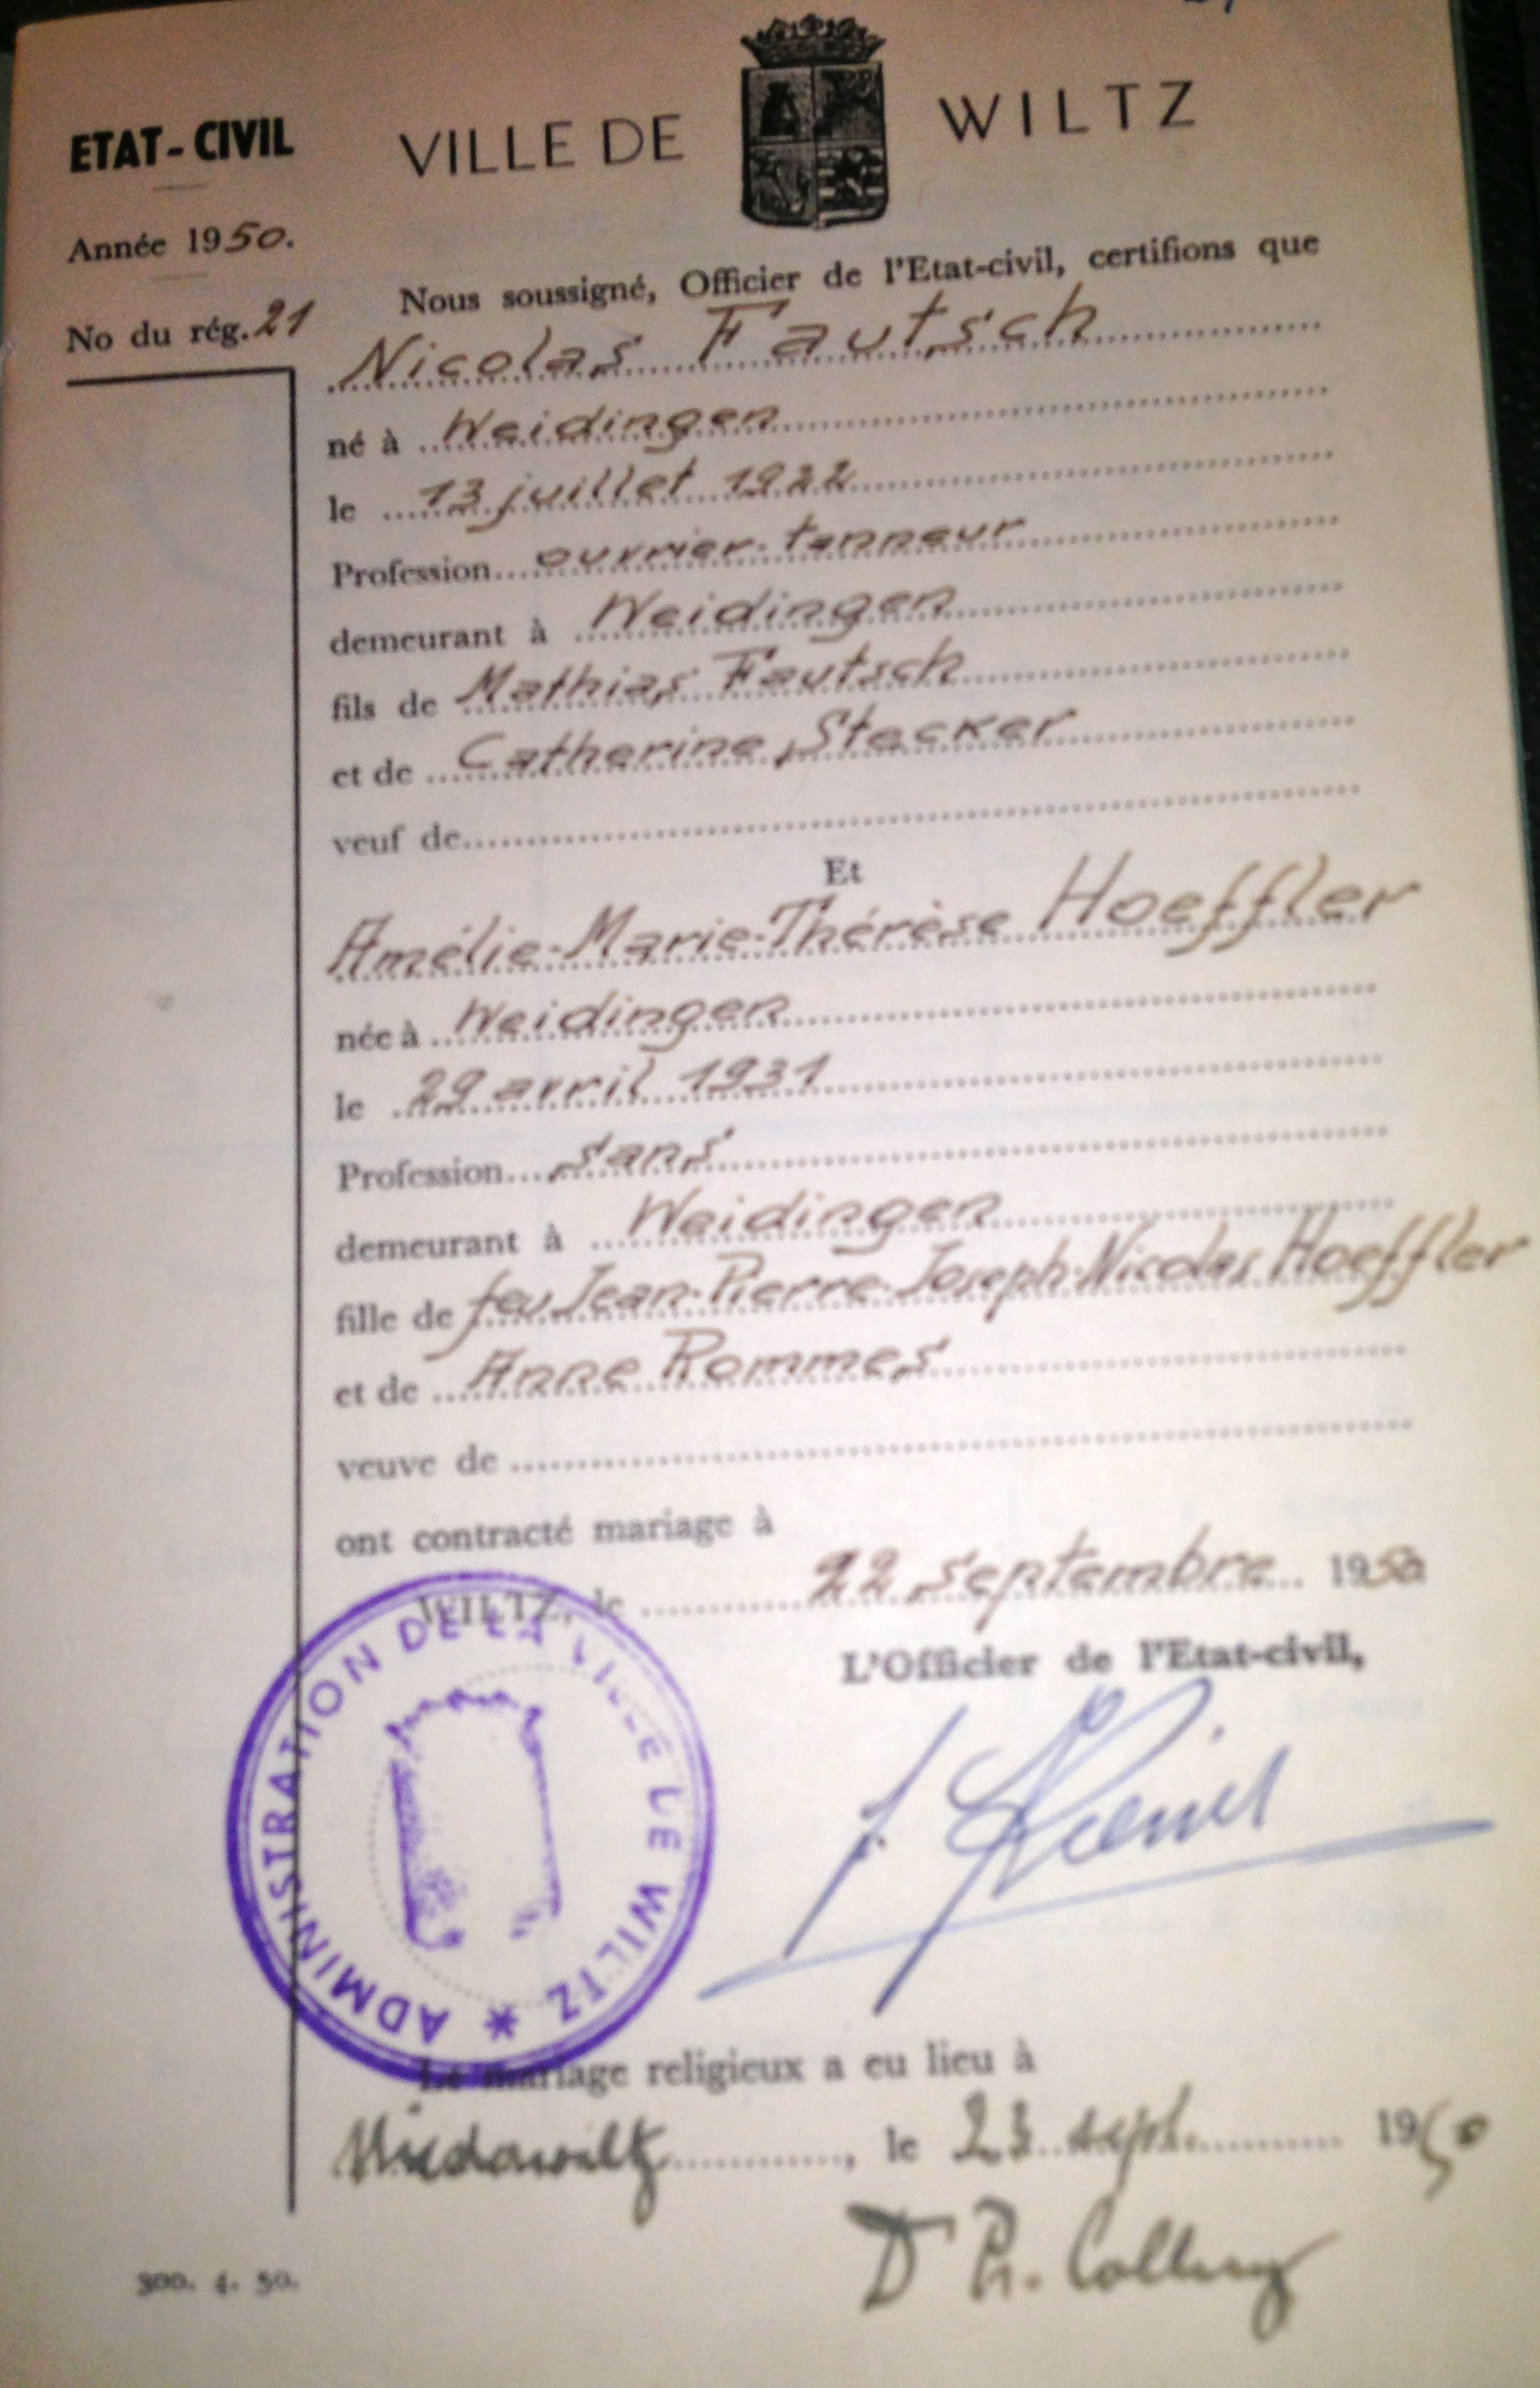 VILLE DE WILTZ
ETAT-CIVIL
Année 1950.
No du rég. 21
Nous soussigné, Officier de l'Etat-civil, certifions que
Nicolas Fautsch
né à Weidingen
le 13 juillet 1922
Profession ouvrier-tanneur
demeurant à Weidingen
fils de Mathias Fautsch
et de Catherine Stecker
veuf de
Et
Amélie-Marie-Thérèse Hoeffler
née à Weidingen
le 29 avril 1931
Profession sans
demeurant à Weidingen
fille de feu Jean-Pierre-Joseph-Nicolas Hoeffler
et de Anne Rommes
veuve de
ont contracté mariage à
WILTZ, le 22 septembre 1950
L'Officier de l'Etat-civil,
ADMINISTRATION DE LA VILLE DE WILTZ *
Le mariage religieux a eu lieu à
Niederwiltz, le 23 sept. 1950
Dr
300. 4. 50.